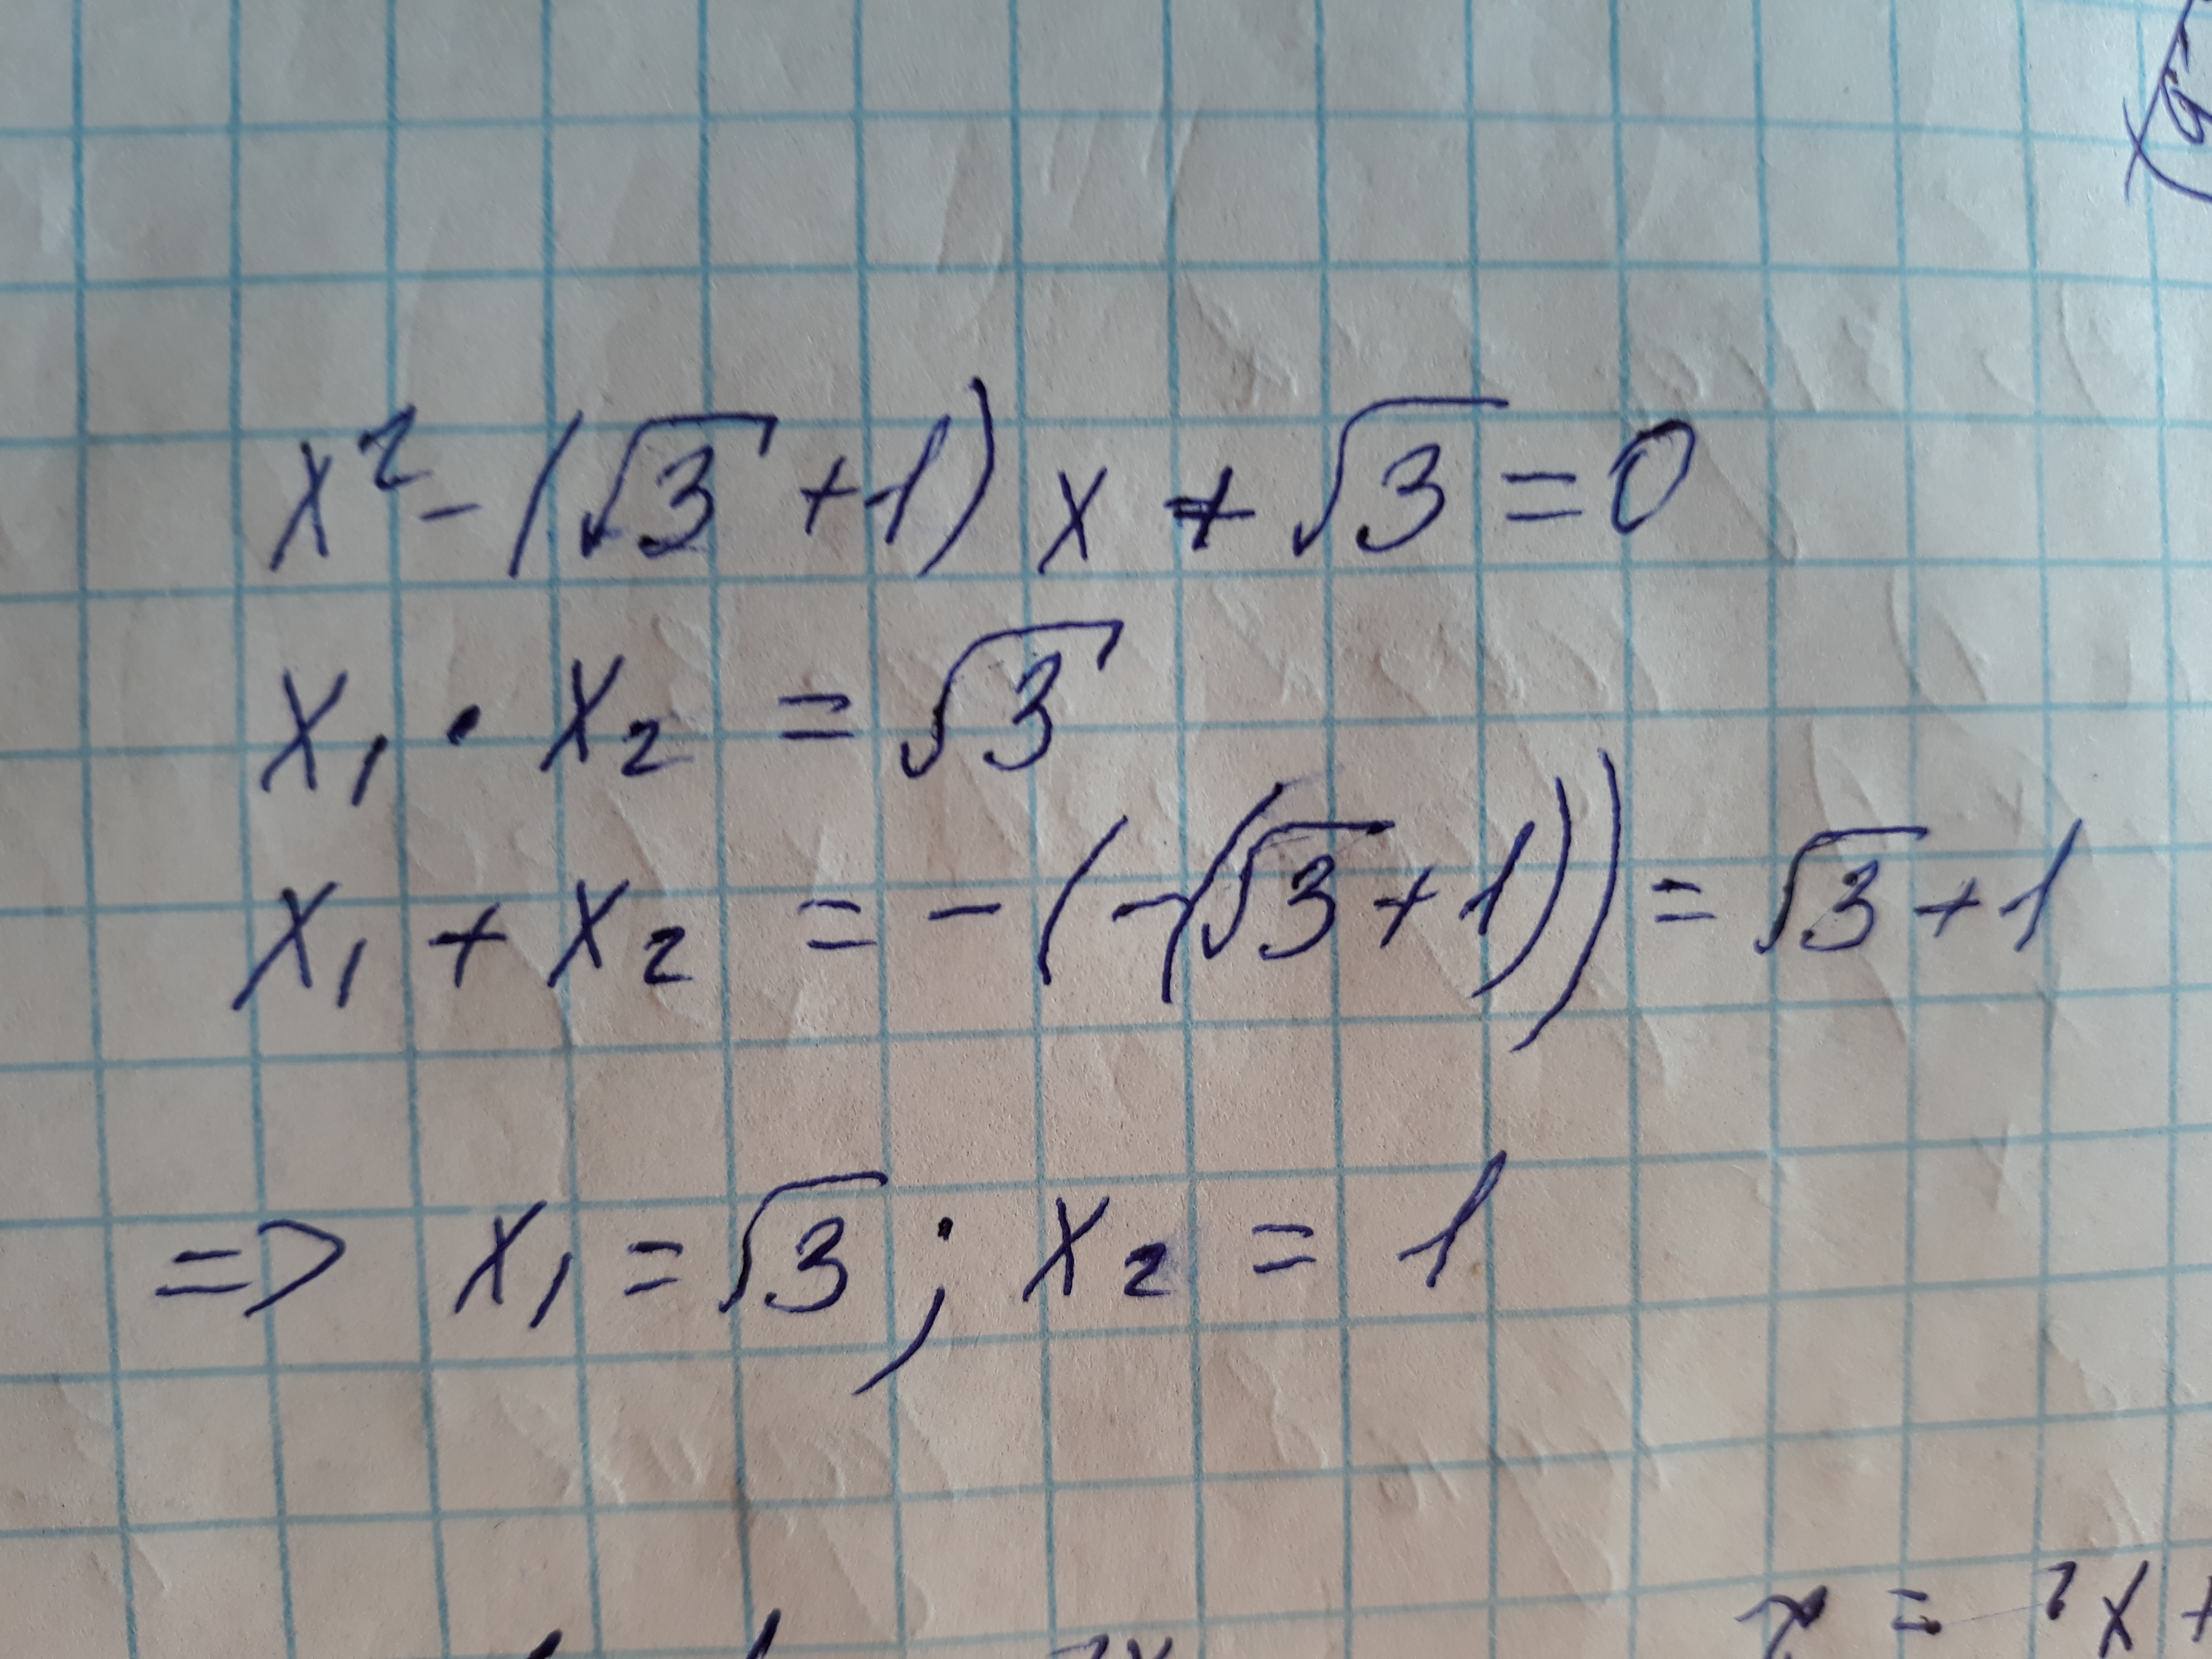 x² - (√3 + 1) x + √3 = 0
x₁ · x₂ = √3
x₁ + x₂ = - (-(√3 + 1)) = √3 + 1
=> x₁ = √3 ; x₂ = 1